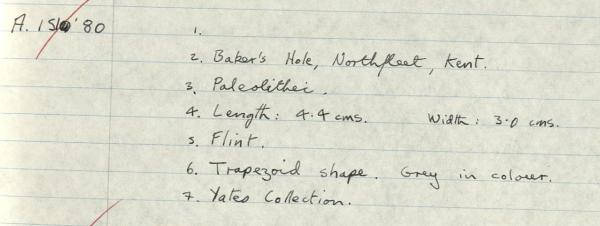 A. 150'80
1.
2. Baker's Hole, Northfleet, Kent.
3. Paleolithic.
4. Length: 4.4 cms. Width: 3.0 cms.
5. Flint.
6. Trapezoid shape. Grey in colour.
7. Yates Collection.